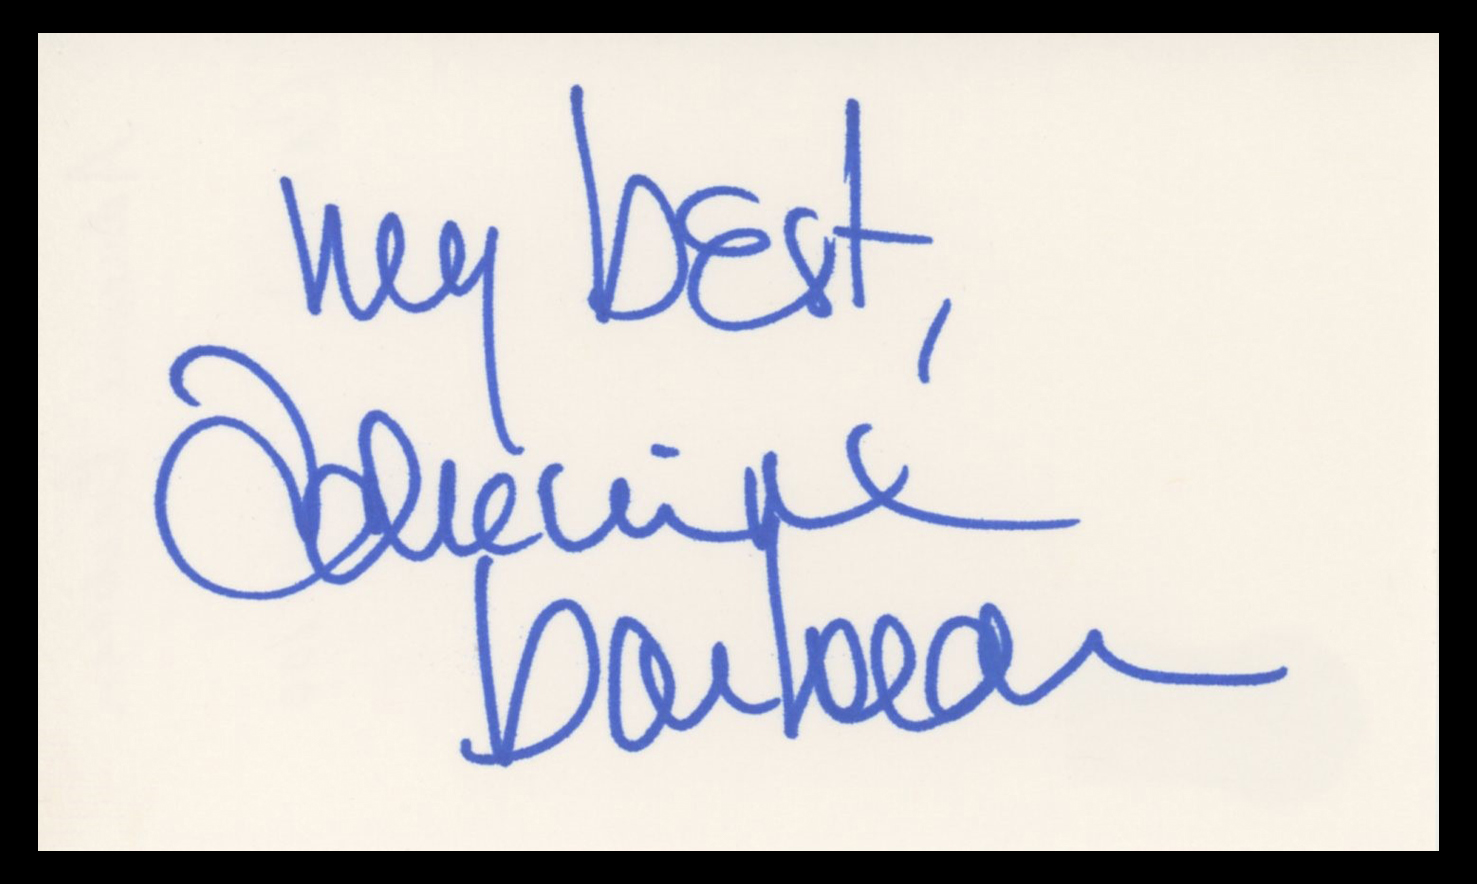 my best,
Adrienne
Barbeau